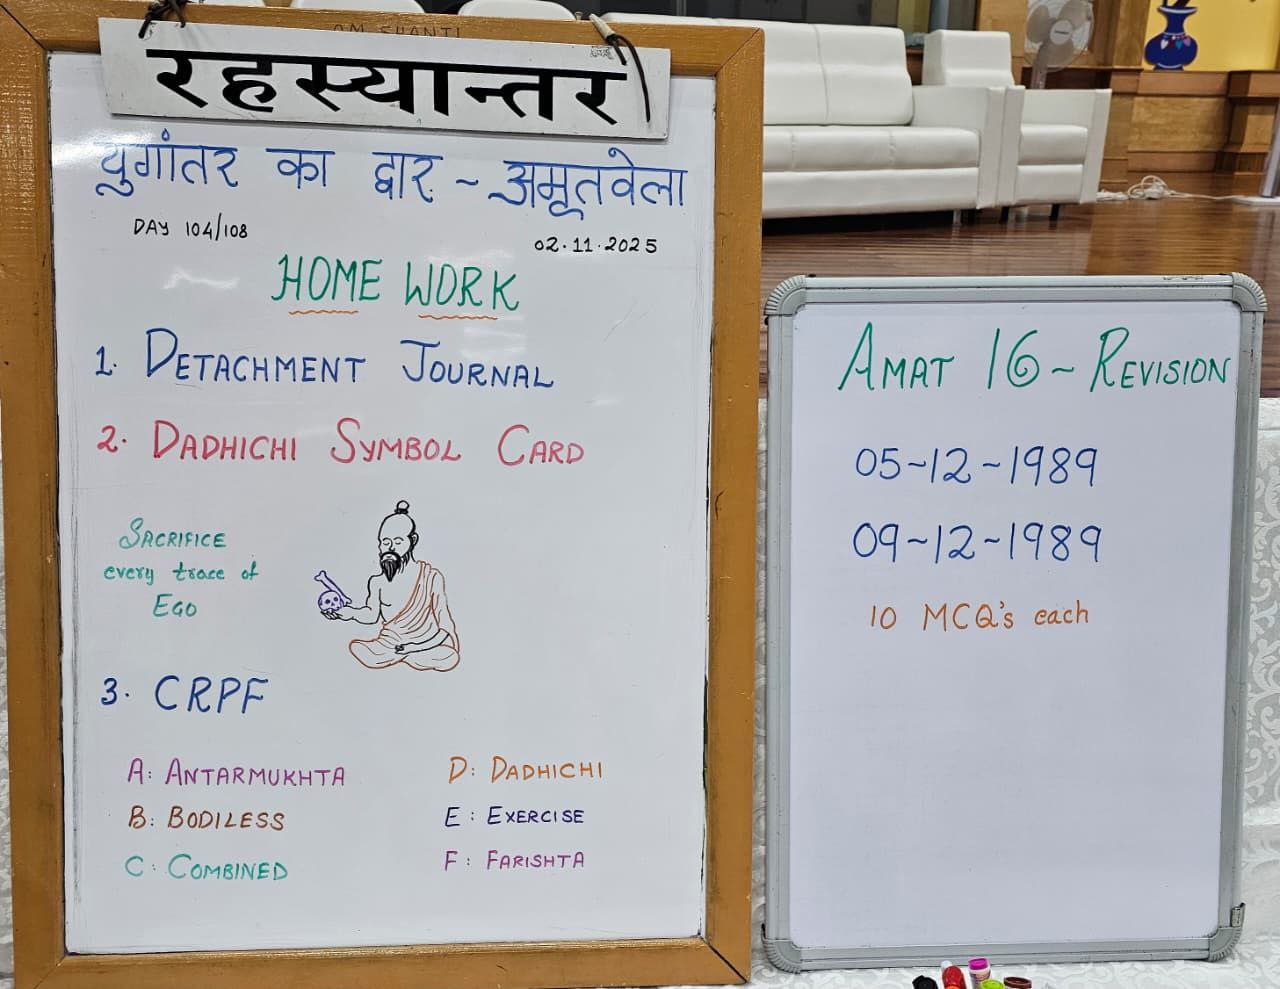 OM SHANTI
रहस्यान्तर
युगांतर का द्वार ~ अमृतवेला
DAY 104/108
02.11.2025
HOME WORK
1. DETACHMENT JOURNAL
2. DADHICHI SYMBOL CARD
SACRIFICE
every trace of
EGO
3. CRPF
A: ANTARMUKHTA
B: BODILESS
C: COMBINED
D: DADHICHI
E: EXERCISE
F: FARISHTA
AMAT 16 ~ REVISION
05-12-1989
09-12-1989
10 MCQ's each